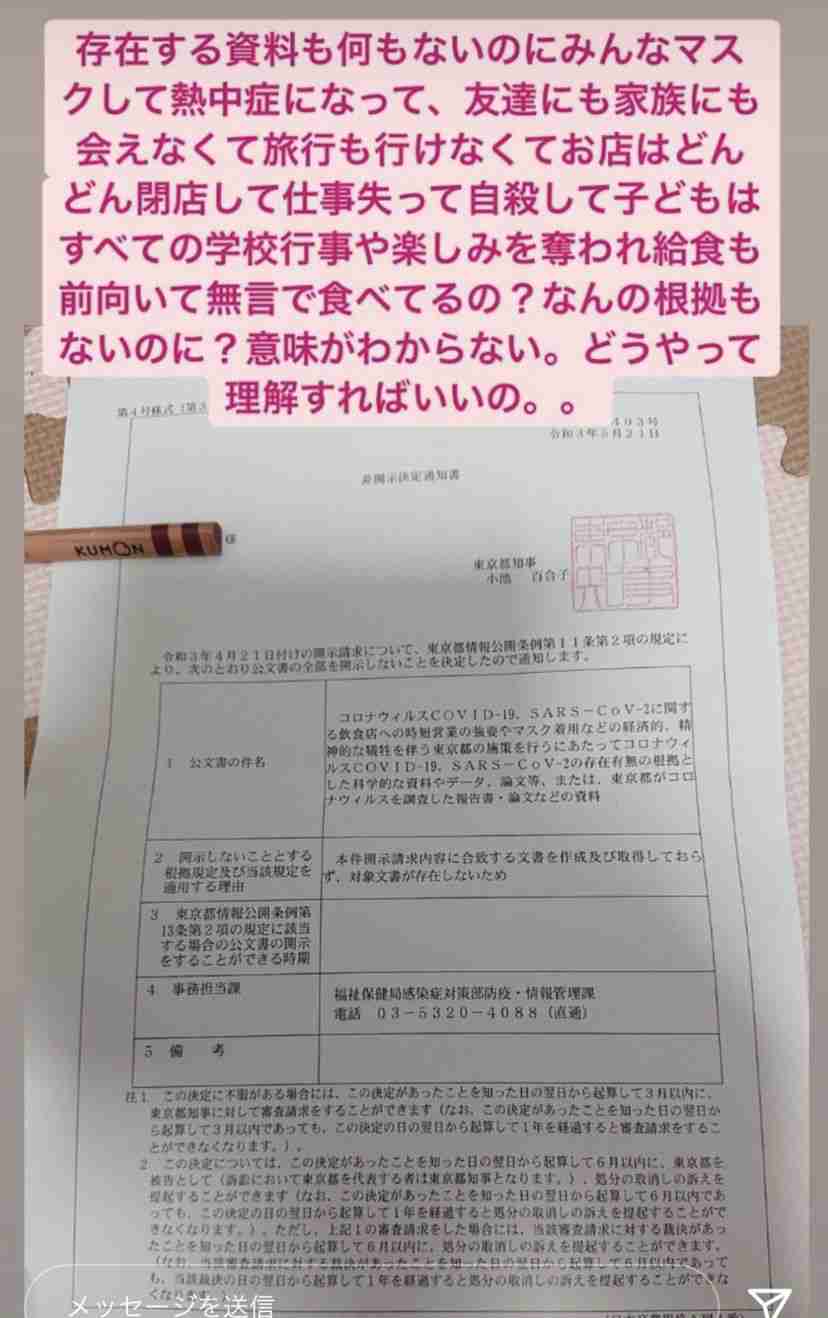 存在する資料も何もないのにみんなマス
クして熱中症になって、友達にも家族にも
会えなくて旅行も行けなくてお店はどん
どん閉店して仕事失って自殺して子どもは
すべての学校行事や楽しみを奪われ給食も
前向いて無言で食べてるの？なんの根拠も
ないのに？意味がわからない。どうやって
理解すればいいの。。
第４号様式（第３
０３号
令和３年５月２１日
非開示決定通知書
KUMON
様
東京都知事
小池　百合子
令和３年４月２１日付けの開示請求について、東京都情報公開条例第１１条第２項の規定に
より、次のとおり公文書の全部を開示しないことを決定したので通知します。
１　公文書の件名
コロナウィルスＣＯＶＩＤ-19、ＳＡＲＳ－ＣｏＶ-2に関す
る飲食店への時短営業の強要やマスク着用などの経済的、精
神的な犠牲を伴う東京都の施策を行うにあたってコロナウィ
ルスＣＯＶＩＤ-19、ＳＡＲＳ－ＣｏＶ-2の存在有無の根拠と
した科学的な資料やデータ、論文等、または、東京都がコロ
ナウィルスを調査した報告書・論文などの資料
２　開示しないこととする
根拠規定及び当該規定を
適用する理由
本件開示請求内容に合致する文書を作成及び取得しておら
ず、対象文書が存在しないため
３　東京都情報公開条例第
13条第２項の規定に該当
する場合の公文書の開示
をすることができる時期
４　事務担当課
福祉保健局感染症対策部防疫・情報管理課
電話　０３－５３２０－４０８８（直通）
５　備　　考
注１　この決定に不服がある場合には、この決定があったことを知った日の翌日から起算して３月以内に、
東京都知事に対して審査請求をすることができます（なお、この決定があったことを知った日の翌日か
ら起算して３月以内であっても、この決定の日の翌日から起算して１年を経過すると審査請求をするこ
とができなくなります。）。
２　この決定については、この決定があったことを知った日の翌日から起算して６月以内に、東京都を
被告として（訴訟において東京都を代表する者は東京都知事となります。）、処分の取消しの訴えを
提起することができます（なお、この決定があったことを知った日の翌日から起算して６月以内であ
っても、この決定の日の翌日から起算して１年を経過すると処分の取消しの訴えを提起することがで
きなくなります。）。ただし、上記１の審査請求をした場合には、当該審査請求に対する裁決があっ
たことを知った日の翌日から起算して６月以内に、処分の取消しの訴えを提起することができます。
（なお、当該審査請求に対する裁決があったことを知った日の翌日から起算して６月以内であって
も、当該裁決の日の翌日から起算して１年を経過すると処分の取消しの訴えを提起することができな
くなります。
メッセージを送信